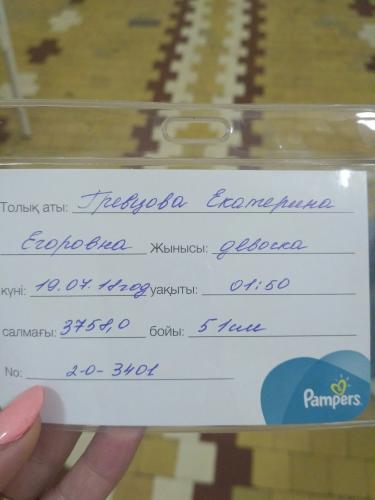 Толық аты: Гревцова Екатерина
Егоровна Жынысы: девоска
күні: 19.07.18год уақыты: 01:50
салмағы: 3758,0 бойы: 51см
No: 2-0-3401
Pampers